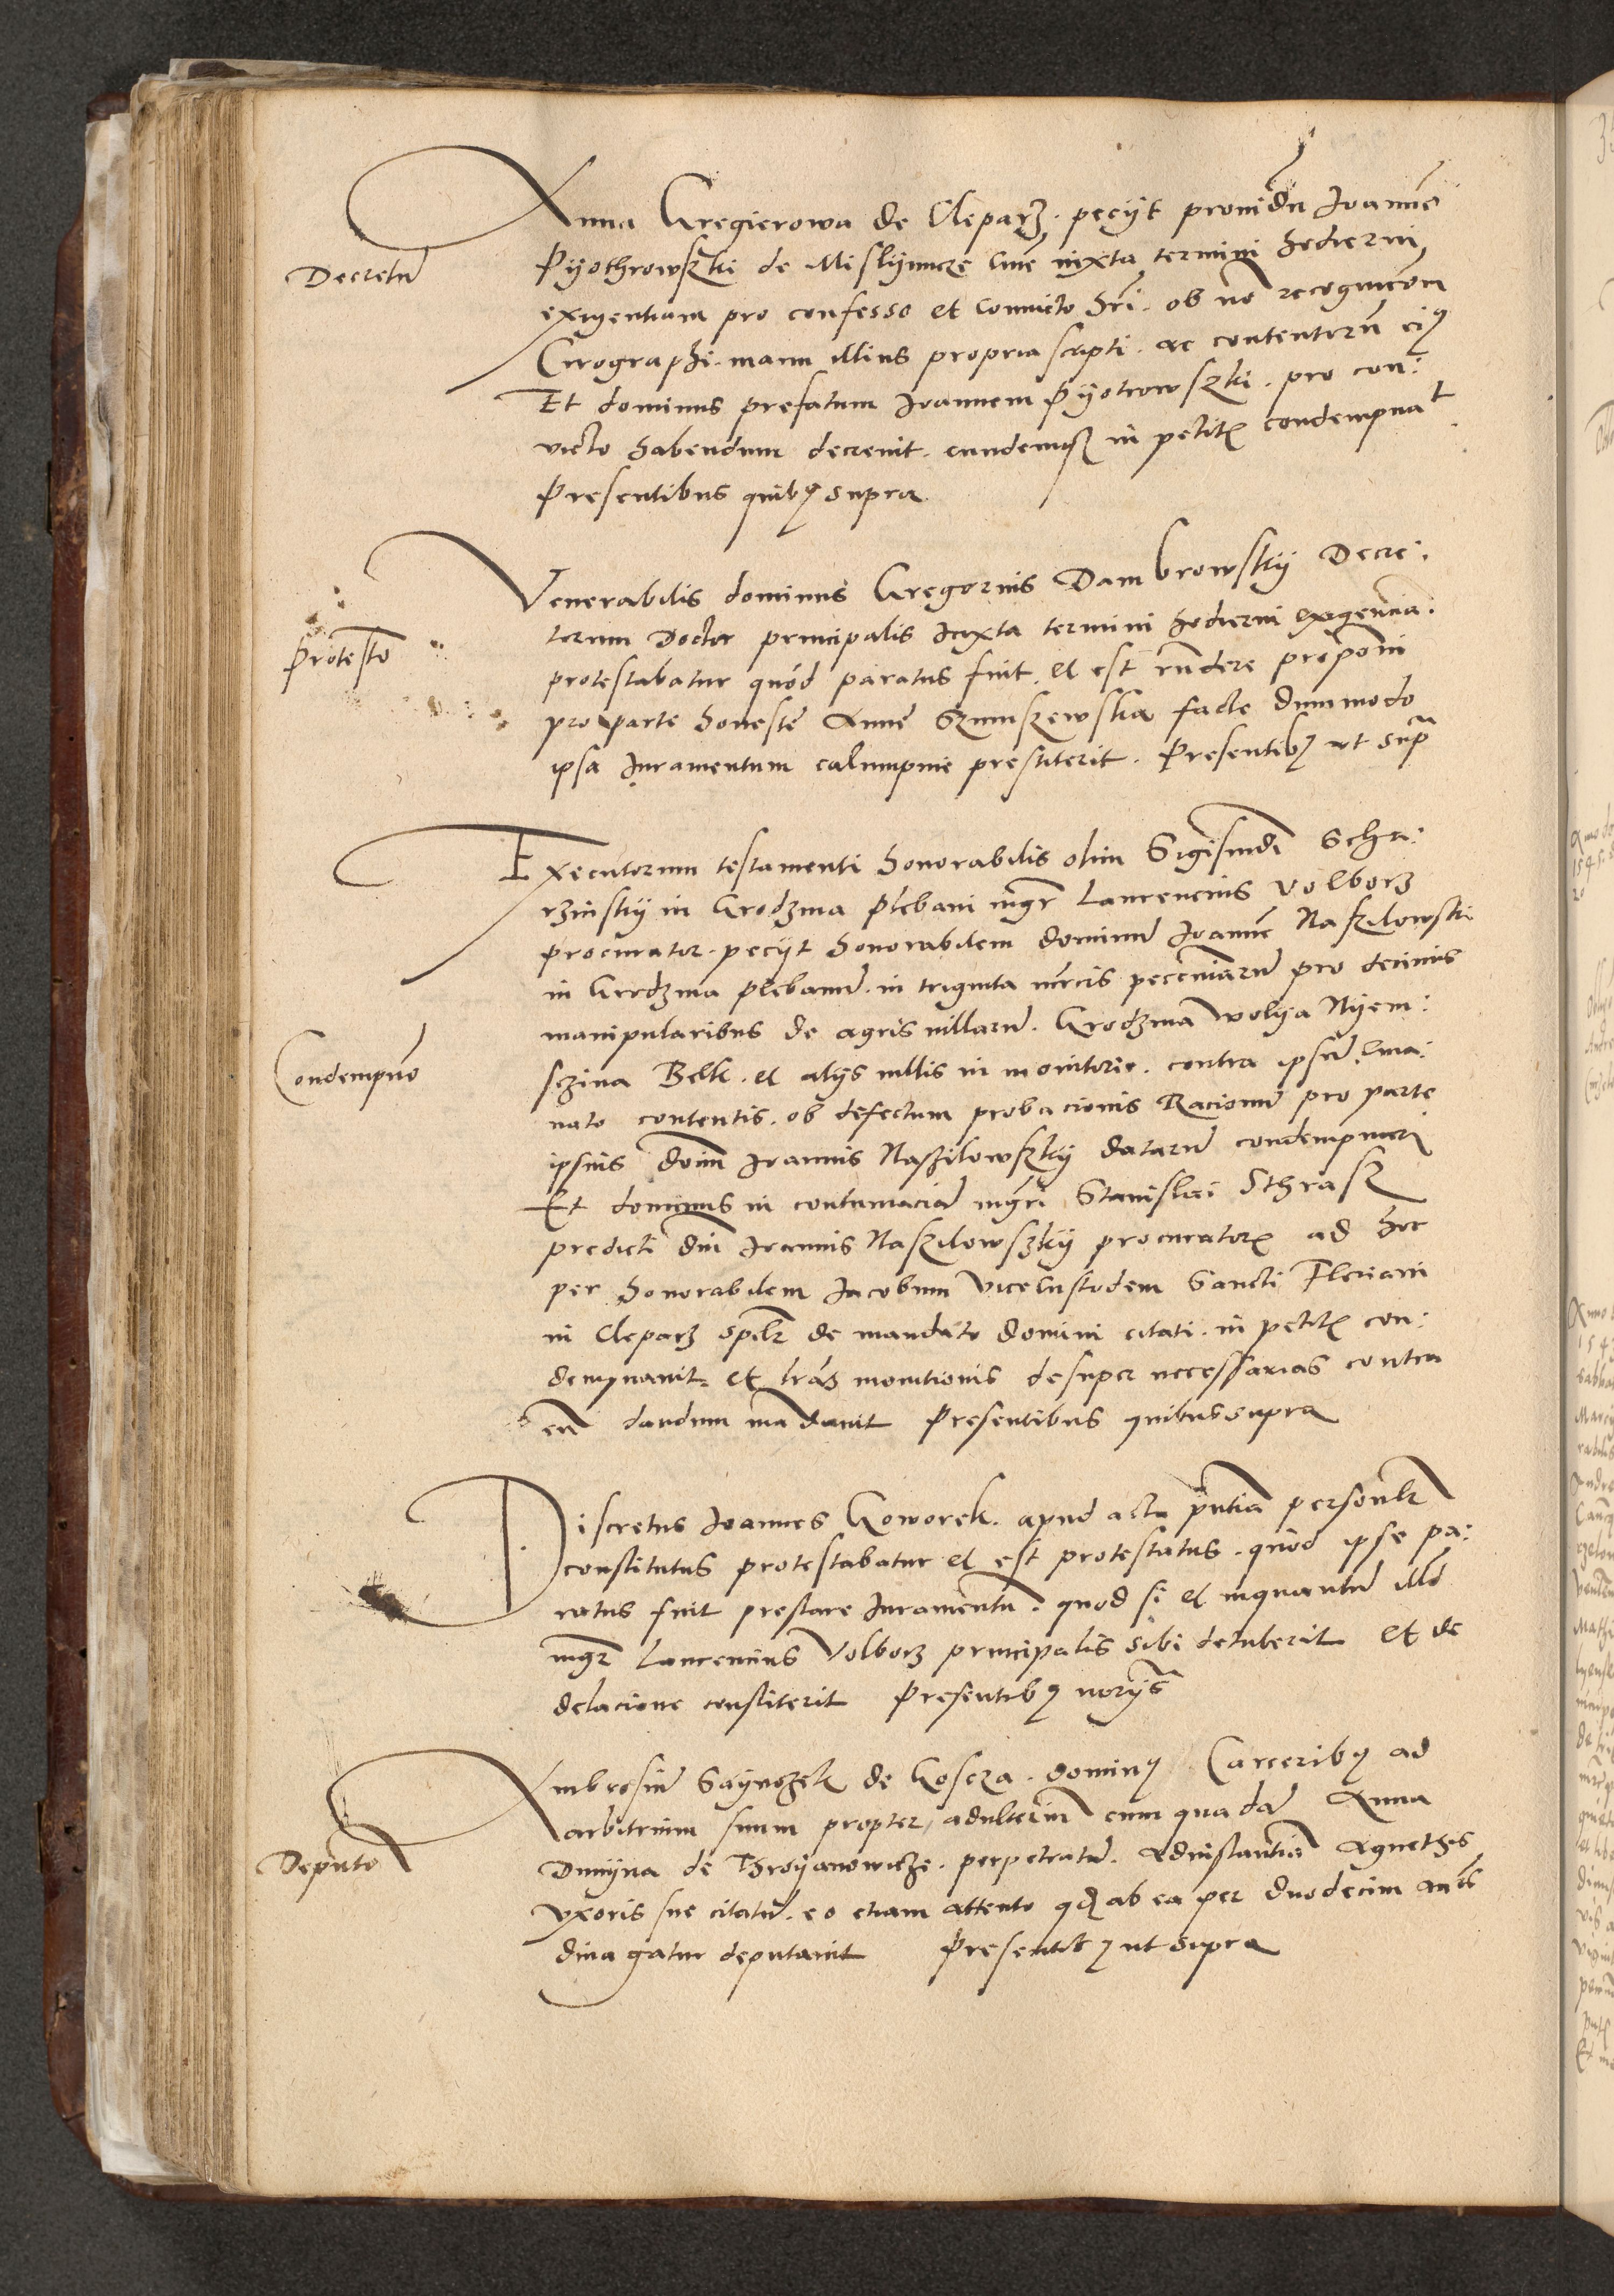 Anna Gregierowa de Cleparz. peciit providu Ioannē
Pyothrowszki de Mislymicze Civē iuxta termini hodierni
Decretū
exigentiam pro confesso et convicto hri. ob nō recognicōem
Cirographi. manu illius propria scripti. ac contentorū eiꝰ
Et dominus prefatum Ioannem Pyotrowszki. pro con:
victo habendum decrevit. eundemqꝫ in petitꝭ condempnat
Presentibus quibꝰ supra
Venerabilis dominus Gregorius Dambrowsky Decre:
torum Doctor principalis iuxta termini hodierni exigencia.
Protestō
protestabatur quód paratus fuit. et est rn̄dere proponi
pro parte honeste Anne Szumszewska facte dummodo
ipsa Iuramentum calumpnie prestiterit. Presentibꝰ ut supͣ
Executorum testamenti honorabilis olim Sigismūdi Scha:
rzinsky in Grodzina plebani mgr̄ Laurencius Volborz
procurator. peciit honorabilem dominū Ioannē Naszilowski
in Grodzina plebanū. in triginta mrcis pecuniarū pro decimis
manipularibus de agris villarū. Grodzina Wolya Nyem:
Condempnō
szina Belk. et alijs villis in monitorio. contra ipsū. Ema:
nato contentis. ob defectum probacionis Racionū pro parte
ipsius dom̄ Ioannis Naszilowszky datarū condempnari
Et dominus in contumaciā mgr̄i Stanislai Sthrasz
predicti dn̄i Ioannis Naszilowszky procuratorꝭ ad hoc
per honorabilem Iacobum Vicecustodem Sancti Floriani
in Cleparz spēlr de mandato domini citati. in petitꝭ con:
dempnavit. et lr̄as monitionis desuper necessarias contra
eū dandum mandavit Presentibus quibus supra
Discretus Ioannes Goworek. apud acta pn̄tia personlr̄
constitutus protestabatur et est protestatus. quòd ipse pa:
ratus fuit prestare Iuramentū. quod si et inquantū illd
mgr̄ Laurencius Volborz principalis sibi detulerit et de
delacione constiterit Presentibꝰ
Ambrosiū Saynoġek de Koscza. dominꝰ Carceribꝰ ad
arbitrium suum propter adulteriū cum quadā Anna
Deputō
Dimyna de Throyanowicze. perpetratū. Ad instantiā Agnethis
Uxoris sue citatū. eo etiam attento qd ab ea per duodecim anīs
divagatur deputavit Presentibꝰ ut supra